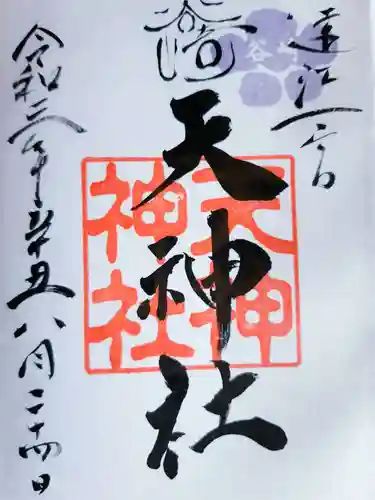 遠江一宮
谷崎
天神社
天神
神社
令和三年辛丑八月二十四日